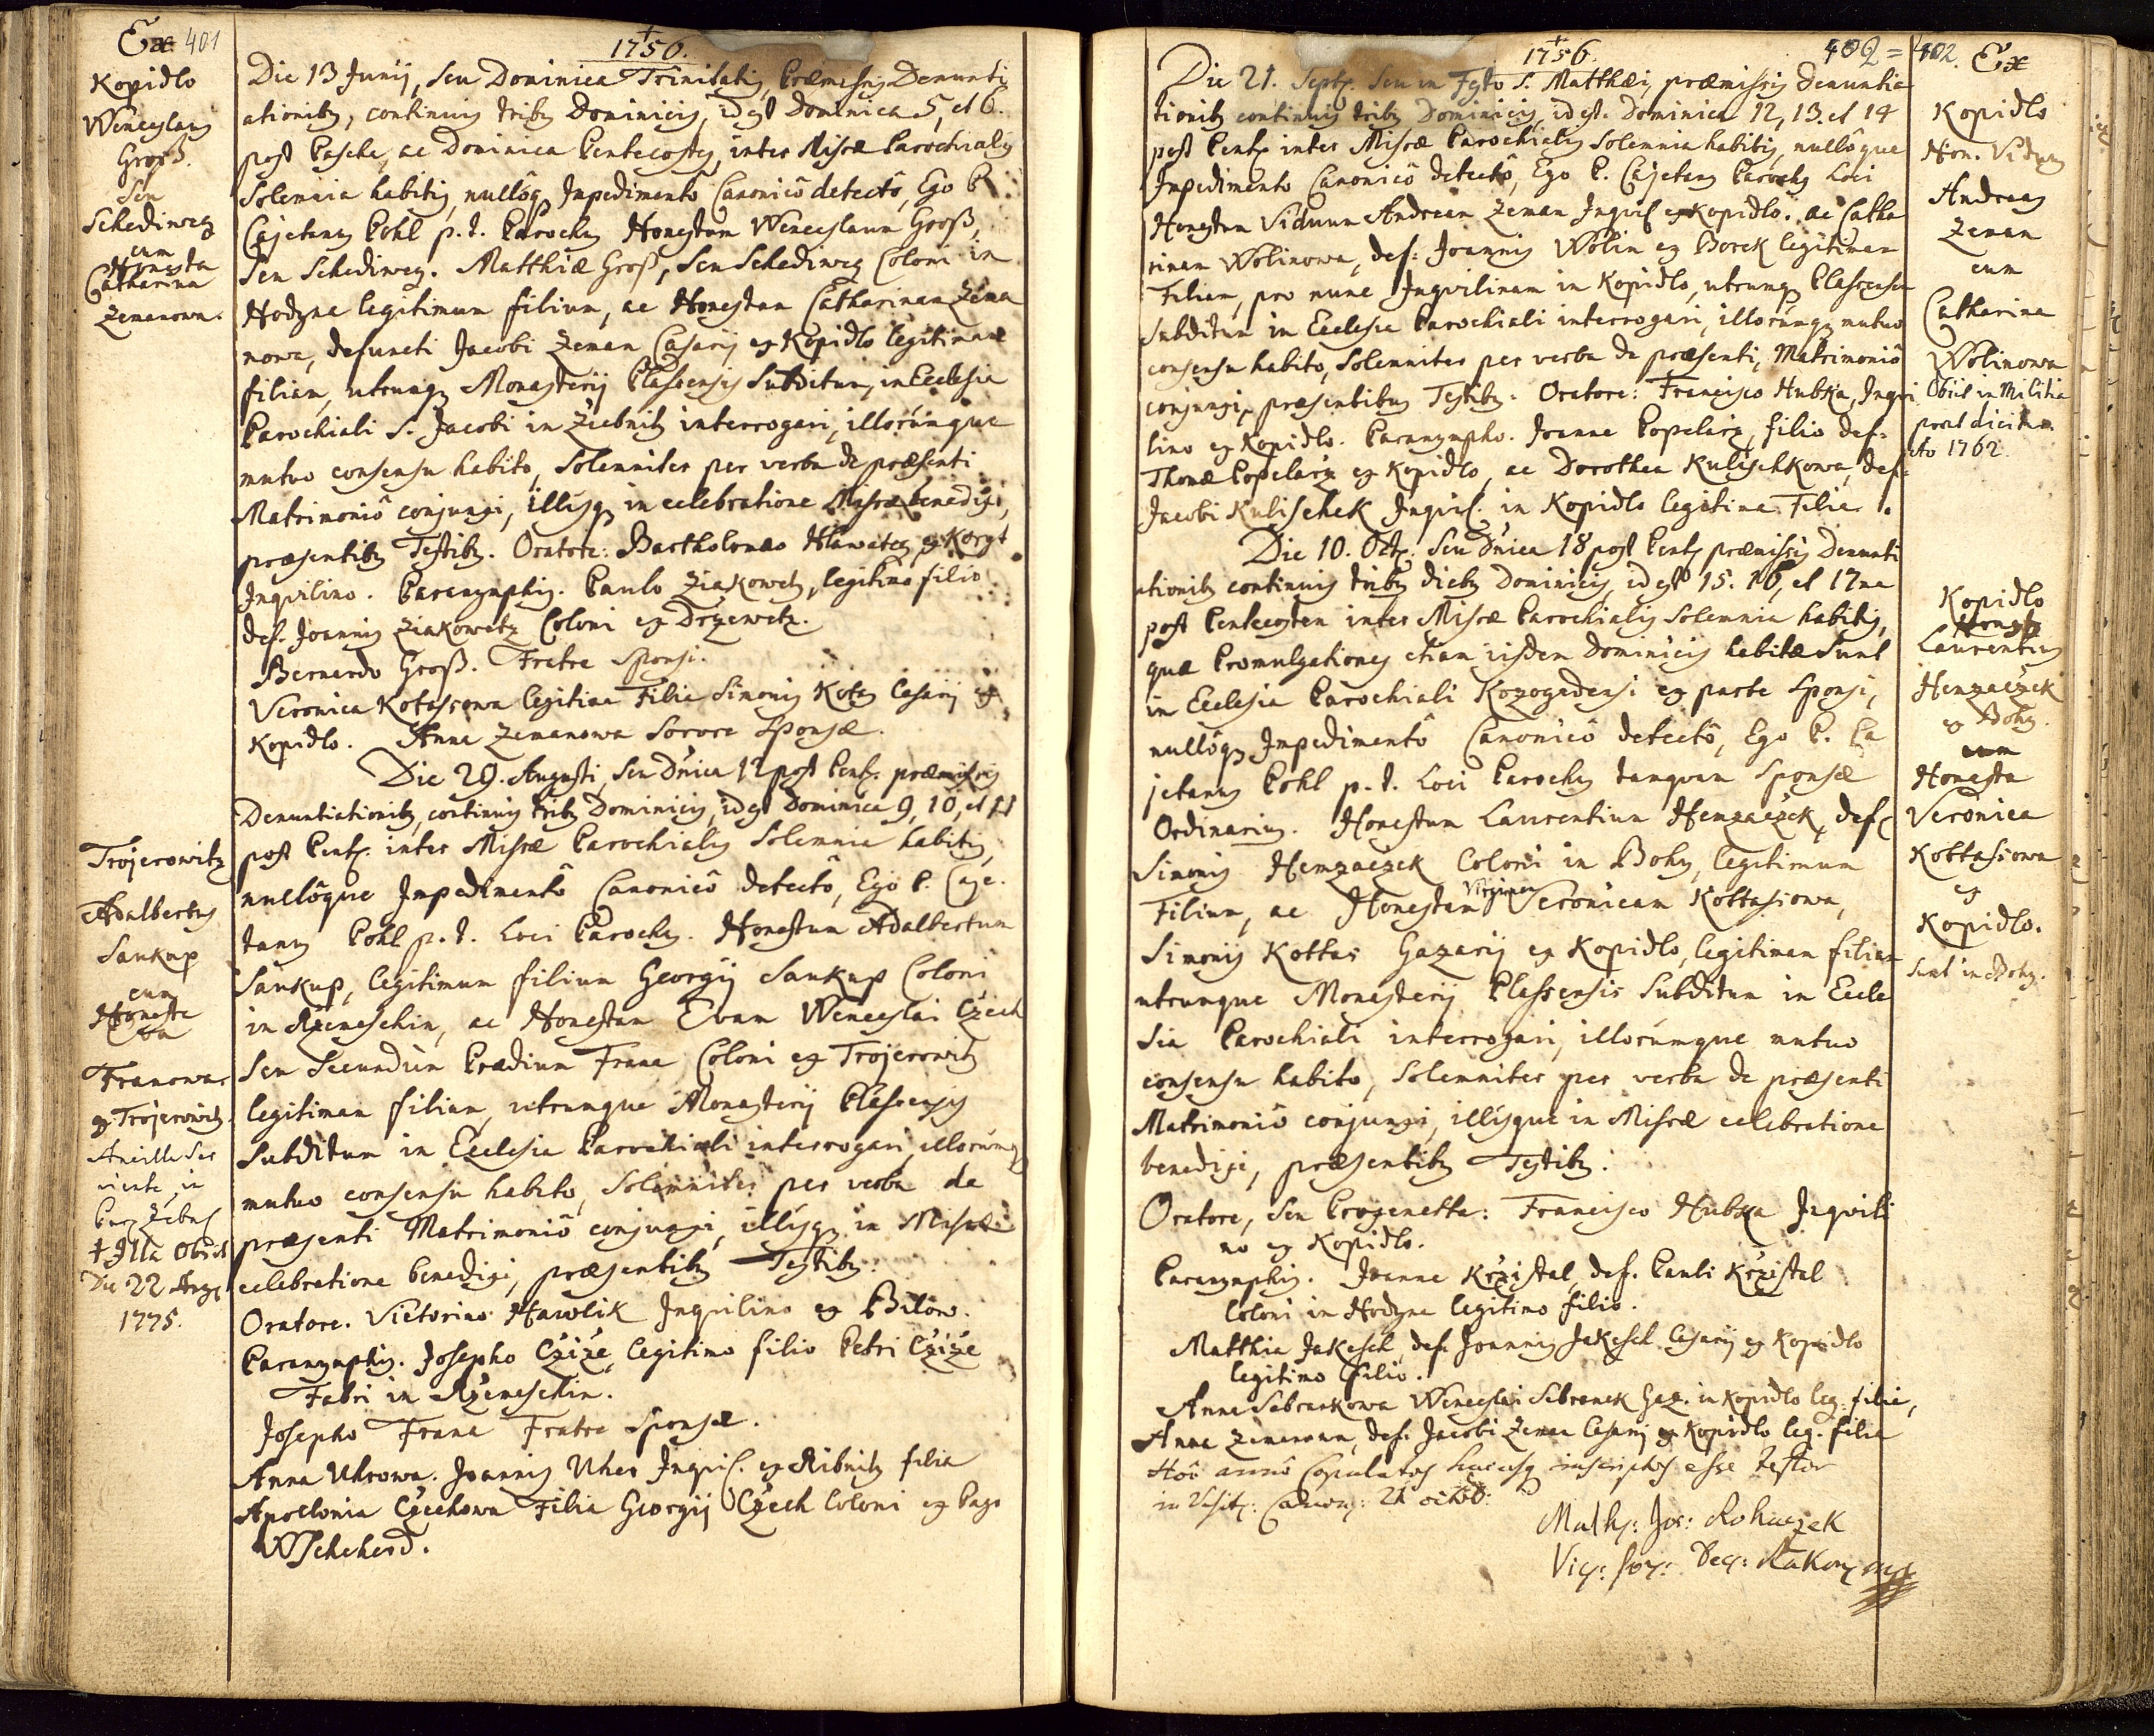 Ex 401
Kopidlo
Wenceslaus
Groß.
Seu
Schediweg
cum
Honesta
Catharina
Zemanowa.
1756.
Die 13 Junij, seu Dominica Trinitatis, Præmissis Denunti
ationibus, continuis tribus Dominicis, id est Dominica 5, et 6.
post Pascha, ac Dominica Pentecostes, inter Missæ Parochialis
Solemnia habitis, nullôq Impedimentô Canonicô detectô, Ego P.
Cajetanus Pohl p. t. Parochus Honestum Wenceslaum Groß,
Seu Schediweg. Matthiæ Groß, Seu Schediweg Coloni in
Hodyne legitimum filium, ac Honestam Catharinam Zema
nowa, defuncti Jacobi Zeman Casarij ex Kopidlo legitimam
filiam, utrumq Monasterij Plassensis Subditum, in Ecclesia
Parochiali S. Jacobi in Ziebnitz interrogavi, illorúmque
mutuo consensu habito, Solemniter per verba de præsenti
Matrimoniô conjunxi, illísq in celebratione Missæ benedixi,
præsentibus Testibus. Oratore: Bartholomæo Hlawatey ex Koryt
Inqvilino. Paranymphis. Paulo Ziakowetz, legitimo filio
def. Joannis Ziakowetz Coloni ex Drzewetz.
Bernardo Groß. Fratre Sponsi.
Veronica Kotassowa legitima Filia Simonis Kotas Casarij ex
Kopidlo. Anna Zemanowa Sorore Sponsæ.
Trojerowitz
Adalbertus
Saukup
cum
Honesta
Eva
Franowa
ex Trojerowitz.
Ancilla Ser
viente in
† Illa Obiit
Die 22 Aug
1775.
Die 29. Augusti, seu Dñica 12 post Pent. præmissis
Denuntiationibus, continuis tribus Dominicis, id est Dominica 9, 10, et 11
post Pent. inter Missæ Parochialis Solemnia habitis,
nullôque Impedimentô Canonicô detectô, Ego P. Caje-
tanus Pohl p. t. Loci Parochus. Honestum Adalbertum
Saukup, legitimum filium Georgij Saukup Coloni
in Rzemeschin, ac Honestam Evam Wenceslai Czech
Seu Secundùm Prædium Frana Coloni ex Trojerowitz
legitimam filiam, utrumque Monasterij Plassensis
Subditum in Ecclesia Parochiali interrogavi, illorúmq
mutuo consensu habito, Solemniter per verba de
præsenti Matrimoniô conjunxi, illísq in Missæ
celebratione benedixi, præsentibus Testibus.
Oratore. Victorino Hawlik Inqvilino ex Bilow.
Paranymphis. Josepho Czize, legitimo filio Petri Czize
Fabri in Rzemeschin.
Josepho Frana Fratre Sponsæ.
Anna Uhrowa. Joannis Uher Inqvil. ex Ribnitz filia
Apollonia Czechowa Filia Georgij Czech Coloni ex Pago
Wscheherd.
1756.
402 = 402. Ex
Die 21. Sept. Seu in Festo S. Matthæi, præmissis denuntia
tionibus continuis tribus Dominicis, id est. Dominica 12, 13. et 14
post Pent. inter Missæ Parochialis Solemnia habitis, nullôque
Impedimentô Canonicô detectô, Ego P. Cajetanus Parochus Loci
Honestum Viduum Andream Zeman Inqvil. ex Kopidlo. ac Catha
rinam Wolinowa, def: Joannis Wolin ex Borek legitimam
Filiam, pro nunc Inqvilinam in Kopidlo, utrumq Plassensem
Subditum in Ecclesia Parochiali interrogavi, illorúmq mutuo
consensu habito, Solemniter per verba de præsenti, Matrimoniô
conjunxi, præsentibus Testibus. Oratore: Francisco Hubka, Inqvi
lino ex Kopidlo. Paranympho. Joanne Popelarz, filio def.
Thomæ Popelarz ex Kopidlo, ac Dorothea Kulischkowa, def.
Jacobi Kulischek Inqvil. in Kopidlo legitima Filia.
Kopidlo
Hon. Viduus
Andreas
Zeman
cum
Catharina
Wolinowa
Obiit in Militia
prout dicitur
Aõ 1762.
Die 10. Oct. Seu Dñica 18 post Pent. præmissis Denunti
ationibus continuis tribus diebus Dominicis, id est 15. 16, et 17ma
post Pentecosten inter Missæ Parochialis Solemnia habitis,
quæ Promulgationes etiam iisdem Dominicis habitæ Sunt
in Ecclesia Parochiali Kozogedensi ex parte Sponsi,
nullôq Impedimentô Canonicô detectô, Ego P. Ca
jetanus Pohl p. t. Loci Parochus tamquam Sponsæ
Ordinarius. Honestum Laurentium Hemzaczek, def.
Simonis Hemzaczek Coloni in Bohy, legitimum
Filium, ac Honestam Virginem Veronicam Kottasiowa,
Simonis Kottas Gazarij ex Kopidlo, legitimam filiam
utrumque Monasterij Plassensis Subditum in Eccle
sia Parochiali interrogavi, illorúmque mutuo
consensu habito, Solemniter per verba de præsenti
Matrimoniô conjunxi, illísque in Missæ celebratione
benedixi, præsentibus Testibus.
Oratore, seu Progenetta: Francisco Hubka Inqvili
no ex Kopidlo.
Paranymphis. Joanne Krzistal, def. Pauli Krzistal
Coloni in Hodyne legitimo filio.
Matthia Jakesch, def. Joannis Jakesch Casarij ex Kopidlo
legitimo filio.
Anna Sebrankowa Wenceslai Sebranek Gaz. in Kopidlo leg. filia,
Anna Zemanowa, def. Jacobi Zeman Casarij ex Kopidlo leg. filia
Kopidlo
Honestus
Laurentius
Hemzaczek
ex Bohy.
cum
Honesta
Veronica
Kottasiowa
ex
Kopidlo.
Sunt in Bohy.
Hôc annô Copulatos hucusq inscriptos esse Testor
in Visit: Canon: 21 octõb:
Math: Jos: Rohaczek
Vic: for: Dec: Rakon